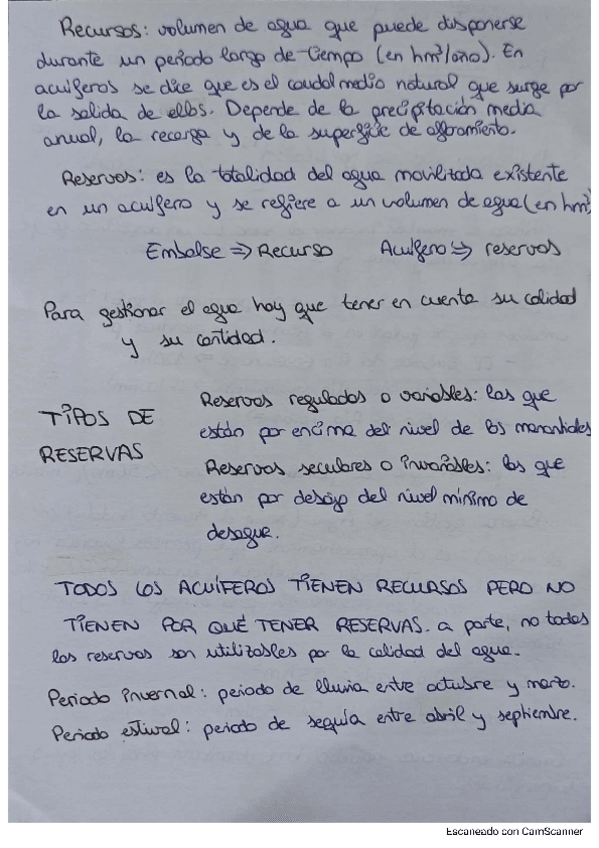 Recursos: volumen de agua que puede disponerse
durante un periodo largo de tiempo (en hm³/año). En
acuíferos se dice que es el caudal medio natural que surge por
la salida de ellos. Depende de la precipitación media
anual, la recarga y de la superficie de afloramiento.
Reservas: es la totalidad del agua movilizada existente
en un acuífero y se refiere a un volumen de agua (en hm³)
Embalse ⇒ Recurso Acuífero ⇒ reservas
Para gestionar el agua hay que tener en cuenta su calidad
y su cantidad.
TIPOS DE
RESERVAS
Reservas reguladas o variables: las que
están por encima del nivel de los manantiales
Reservas seculares o invariables: las que
están por debajo del nivel mínimo de
desagüe.
TODOS LOS ACUÍFEROS TIENEN RECURSOS PERO NO
TIENEN POR QUÉ TENER RESERVAS. a parte, no todas
las reservas son utilizables por la calidad del agua.
Periodo invernal: periodo de lluvia entre octubre y marzo.
Periodo estival: periodo de sequía entre abril y septiembre.
Escaneado con CamScanner